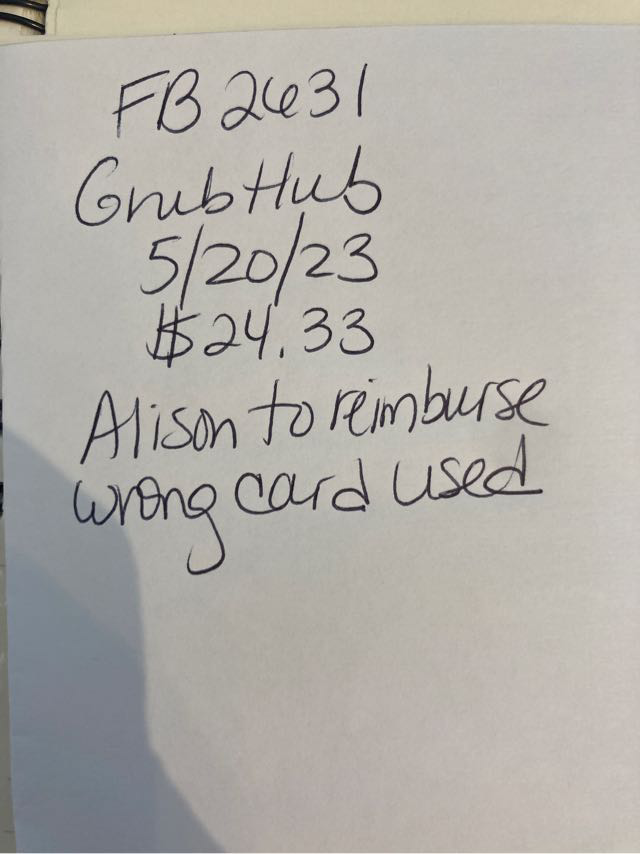 FB 2631
GrubHub
5/20/23
$24.33
Alison to reimburse
wrong card used